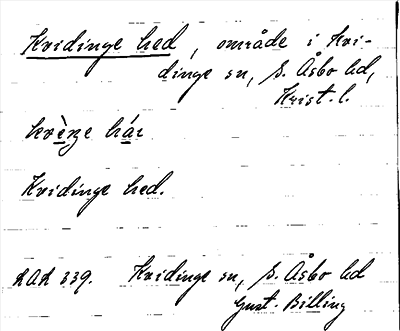 Kvidinge hed, område i Kvi-
dinge sn, S. Åsbo hd,
Krist. l.
Kvidinge hed.
LAL 339. Kvidinge sn, S. Åsbo hd
Gust. Billing